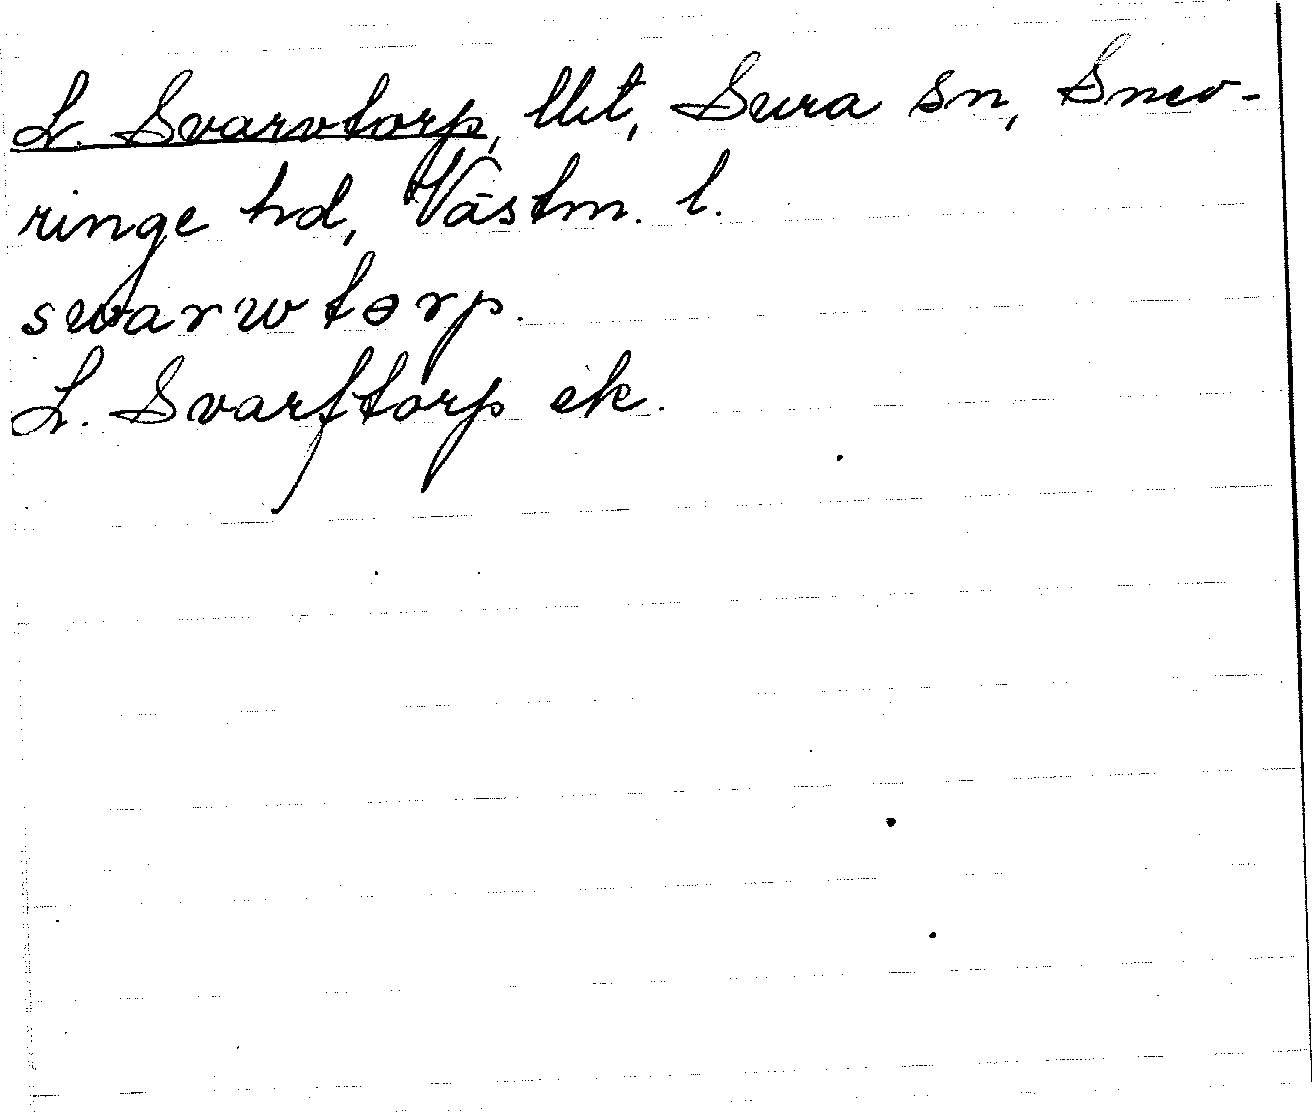 L. Svarvtorp, llht, Sura sn, Snev-
ringe hd, Västm. l.
swarwtərp.
L. Svarftorp ek.